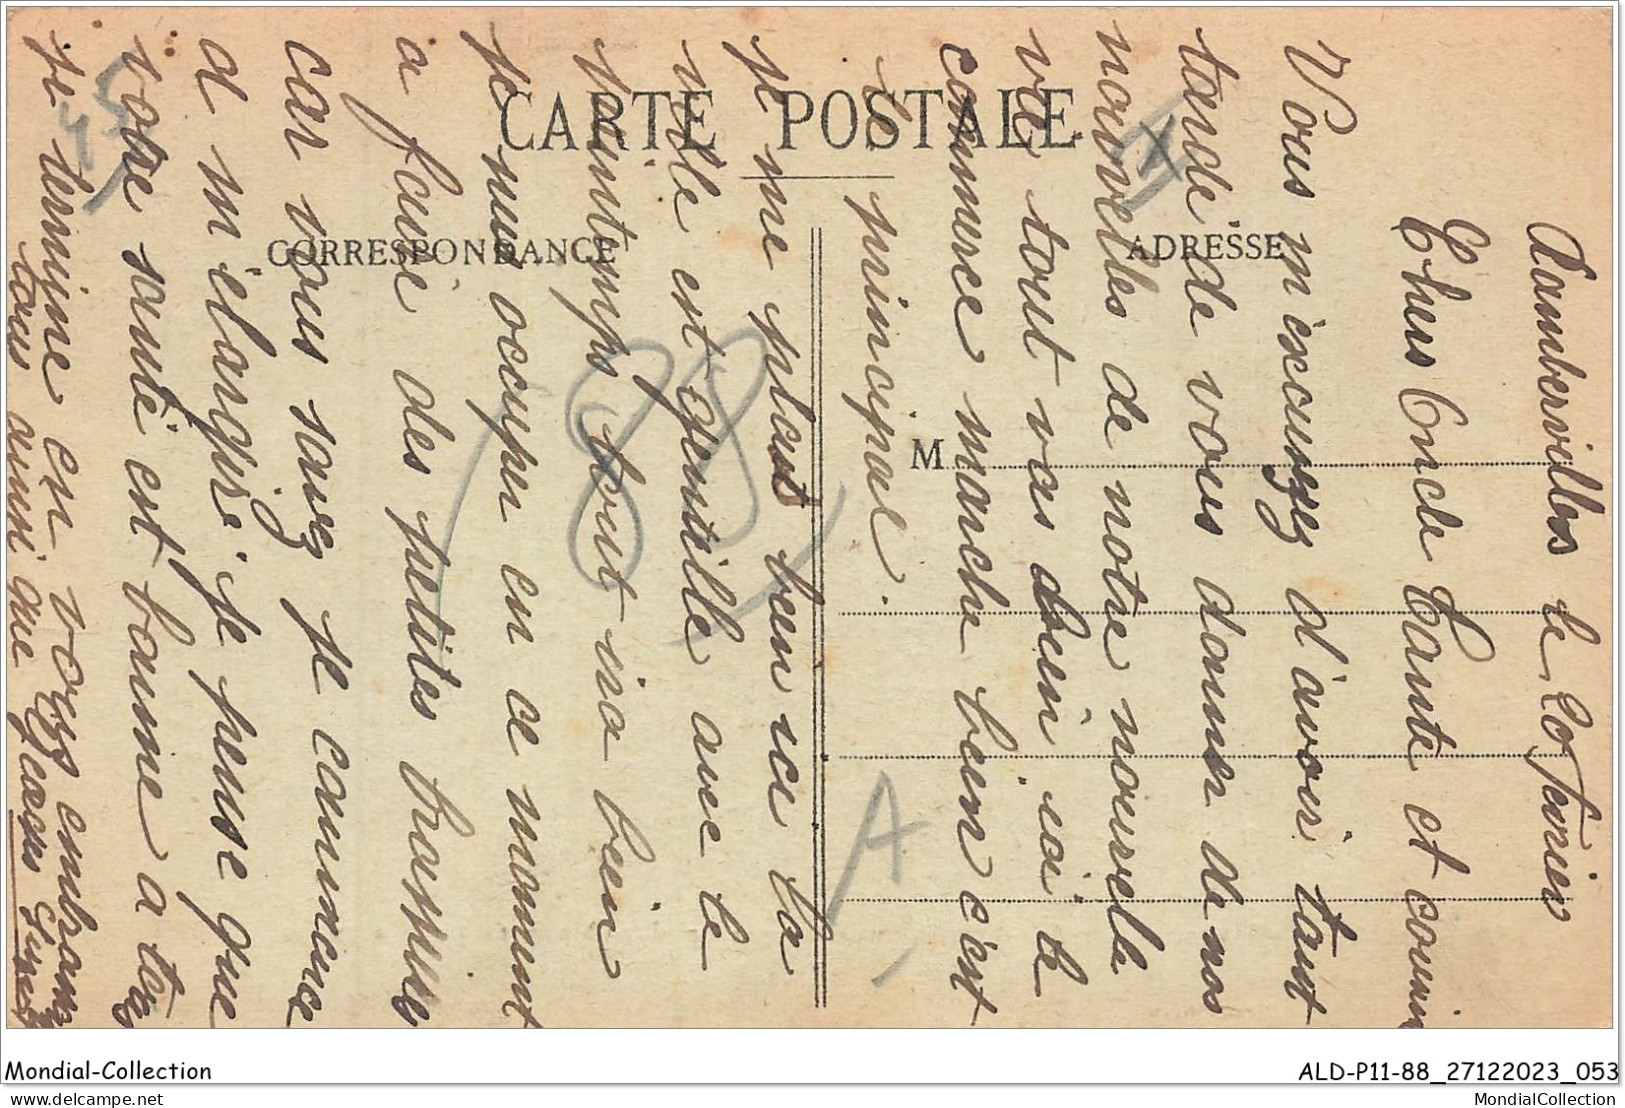 CARTE POSTALE
CORRESPONDANCE
ADRESSE
M
Rambervillers le 20 Fevrier
Chers Oncle Tante et cousin
Vous m'excusez d'avoir tant
tardé de vous donner de nos
nouvelles de notre nouvelle
vie tout vas bien ici le
commerce marche bien c'est
le principal.
je me plais bien ici la
ville est gentille avec le
printemps tout ira bien
je suis occuper en ce moment
a faire des petites brassières
car vous savez je commence
a m'élargire je pense que
votre santé est bonne a tous
je termine en vous embrassant
tous ainsi que
88
A
Mondial-Collection
ALD-P11-88_27122023_053
delcampe.net
MondialCollection